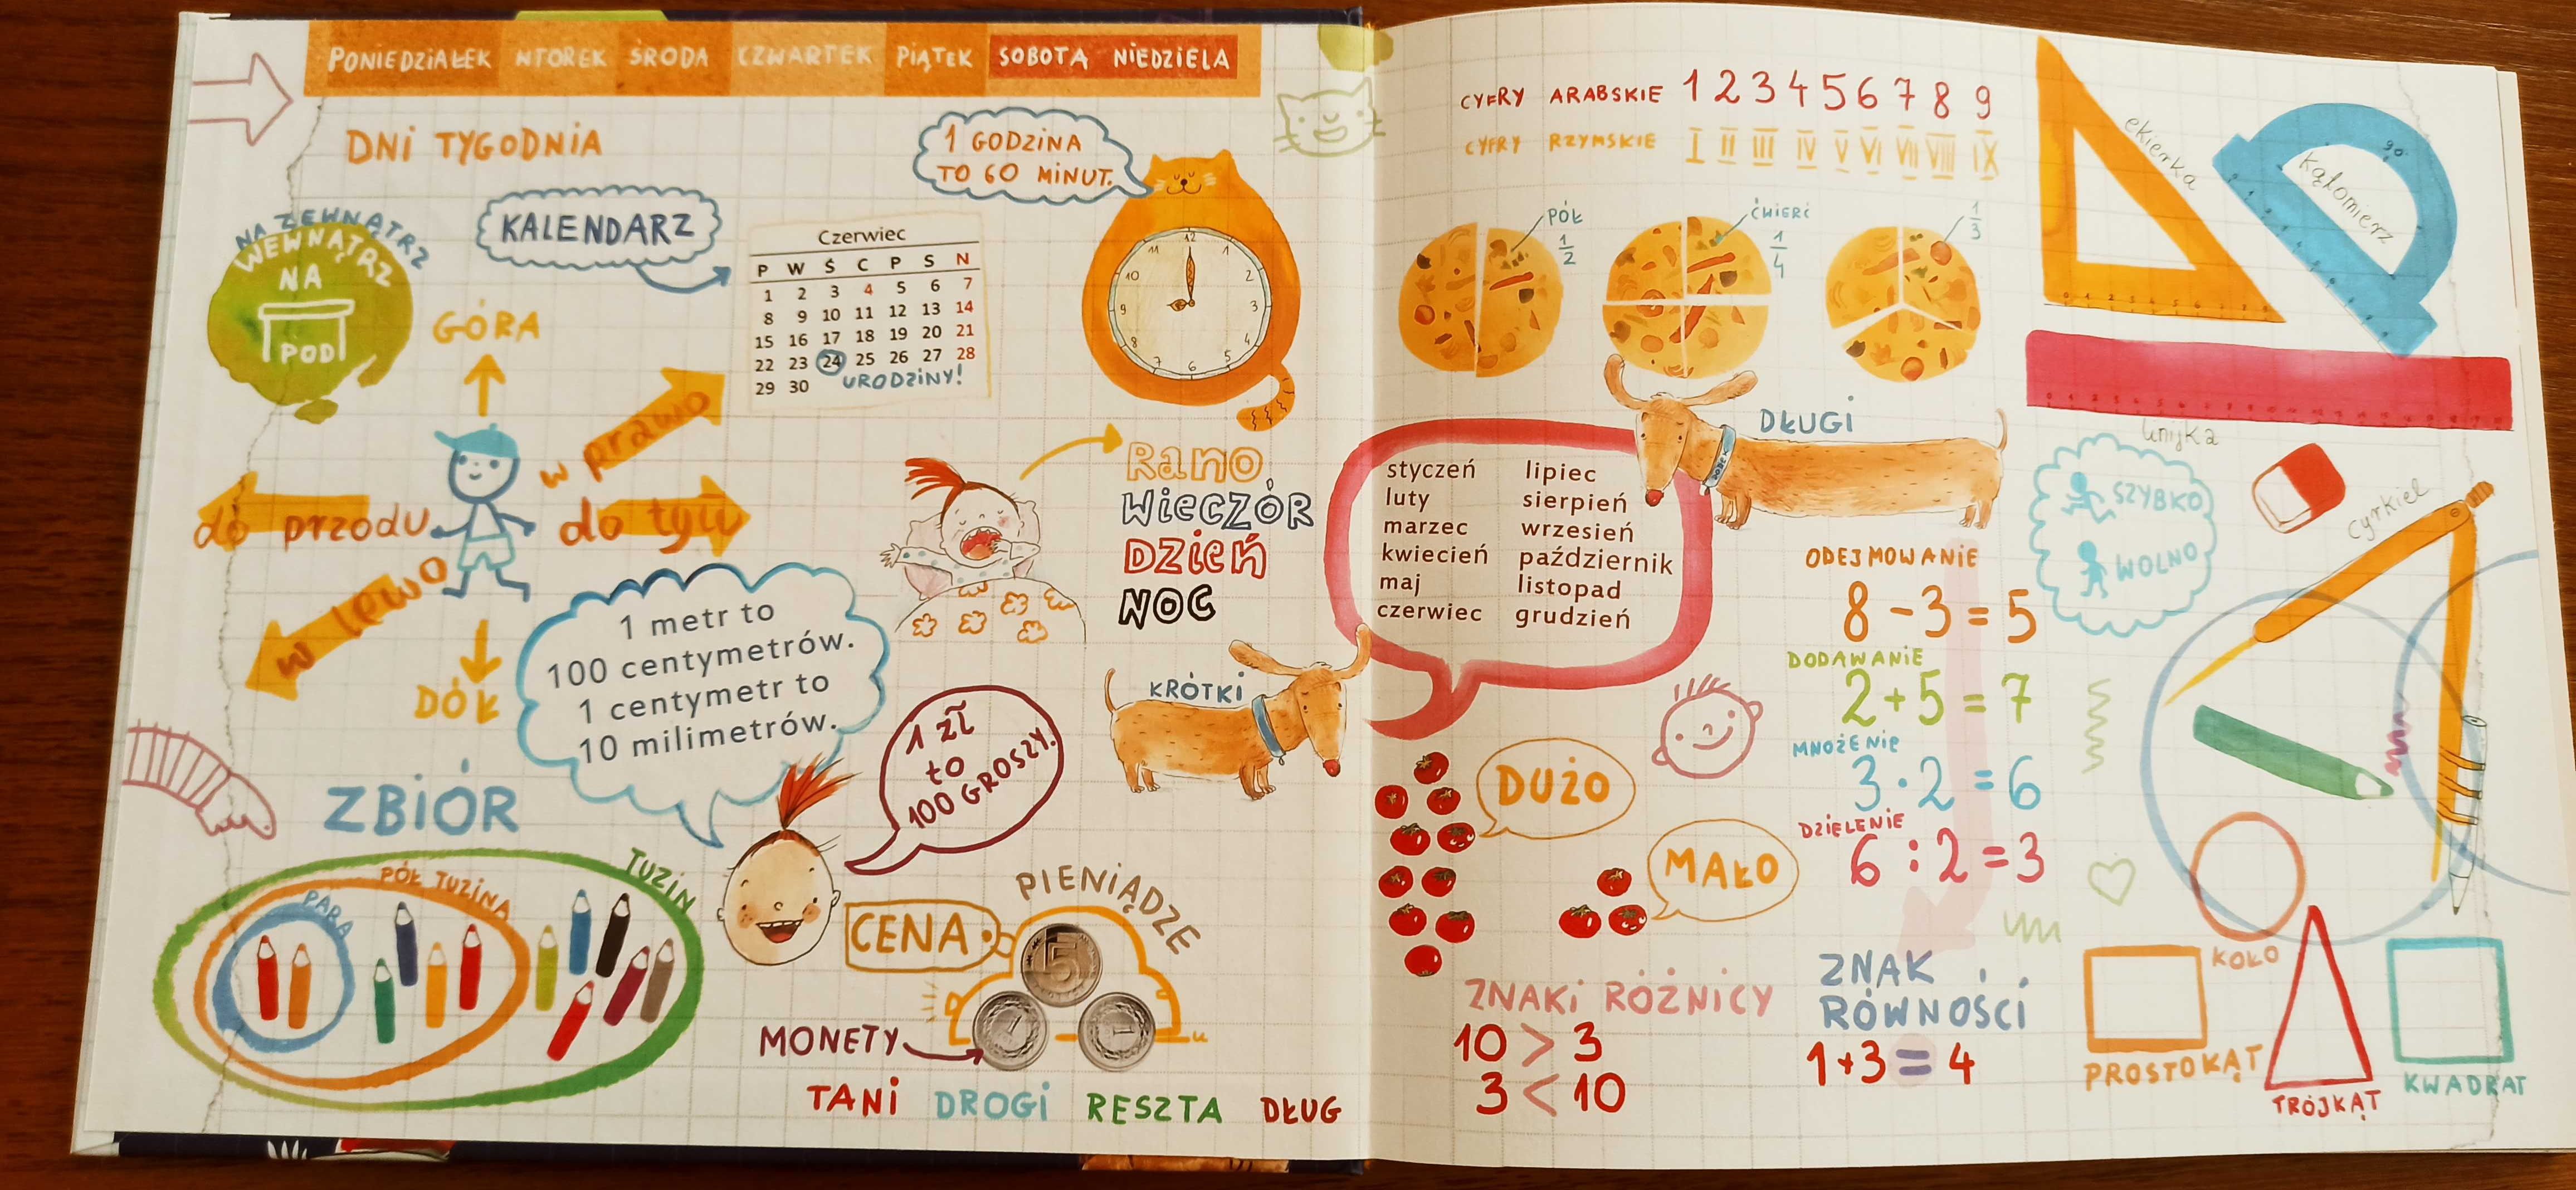 PONIEDZIAŁEK WTOREK ŚRODA CZWARTEK PIĄTEK SOBOTA NIEDZIELA
DNI TYGODNIA
1 GODZINA
TO 60 MINUT.
NA ZEWNĄTRZ
WEWNĄTRZ
NA
POD
KALENDARZ
Czerwiec
P W Ś C P S N
1 2 3 4 5 6 7
8 9 10 11 12 13 14
15 16 17 18 19 20 21
22 23 24 25 26 27 28
29 30 URODZINY!
12
11 1
10 2
9 3
8 4
7 5
6
GÓRA
w prawo
do przodu
do tyłu
w lewo
DÓŁ
RANO
WIECZÓR
DZIEŃ
NOC
1 metr to
100 centymetrów.
1 centymetr to
10 milimetrów.
KRÓTKI
1 zł
to
100 GROSZY.
ZBIÓR
PARA
PÓŁ TUZINA
TUZIN
CENA
PIENIĄDZE
5
1 1
MONETY
TANI DROGI RESZTA DŁUG
CYFRY ARABSKIE 1 2 3 4 5 6 7 8 9
CYFRY RZYMSKIE I II III IV V VI VII VIII IX
PÓŁ
1/2
ĆWIERĆ
1/4
1/3
ekierka
kątomierz
90°
linijka
DŁUGI
styczeń lipiec
luty sierpień
marzec wrzesień
kwiecień październik
maj listopad
czerwiec grudzień
SZYBKO
WOLNO
cyrkiel
ODEJMOWANIE
8 - 3 = 5
DODAWANIE
2 + 5 = 7
MNOŻENIE
3 · 2 = 6
DZIELENIE
6 : 2 = 3
DUŻO
MAŁO
ZNAKI RÓŻNICY
10 > 3
3 < 10
ZNAK
RÓWNOŚCI
1 + 3 = 4
KOŁO
PROSTOKĄT
TRÓJKĄT
KWADRAT